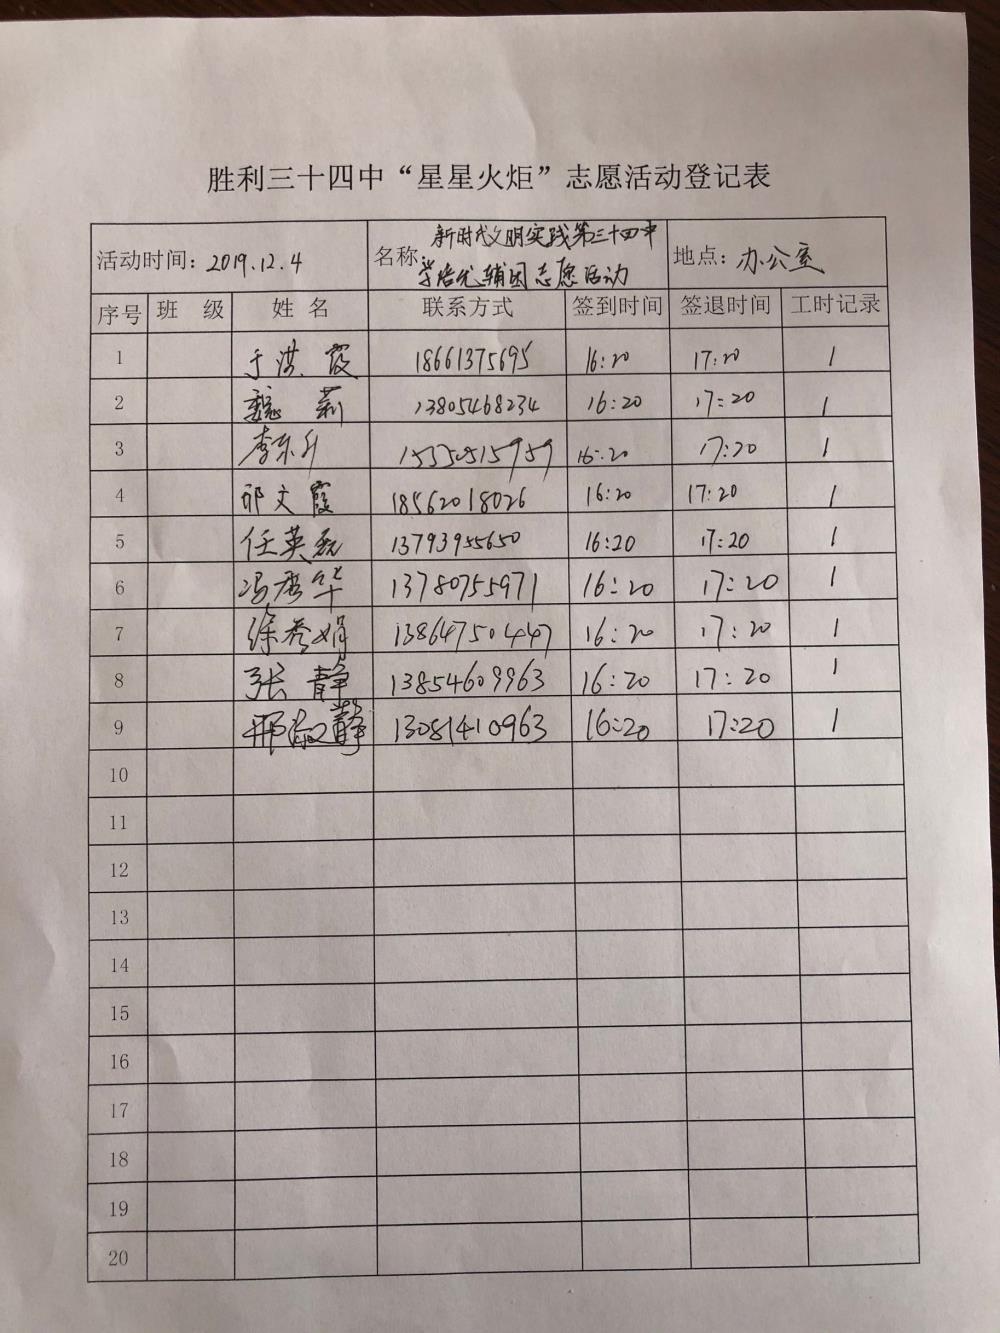 胜利三十四中“星星火炬”志愿活动登记表
活动时间：2019.12.4 名称：新时代文明实践第三十四中学培优辅困志愿活动 地点：办公室
序号 班 级 姓 名 联系方式 签到时间 签退时间 工时记录
1 于洪霞 18661375695 16:20 17:20 1
2 魏莉 13805468234 16:20 17:20 1
3 李东升 15350515959 16:20 17:20 1
4 祁文霞 18562018026 16:20 17:20 1
5 任英磊 13793955650 16:20 17:20 1
6 冯秀华 13780755971 16:20 17:20 1
7 徐秀娟 13864750447 16:20 17:20 1
8 张静 13854609963 16:20 17:20 1
9 邢淑静 13081410963 16:20 17:20 1
10
11
12
13
14
15
16
17
18
19
20